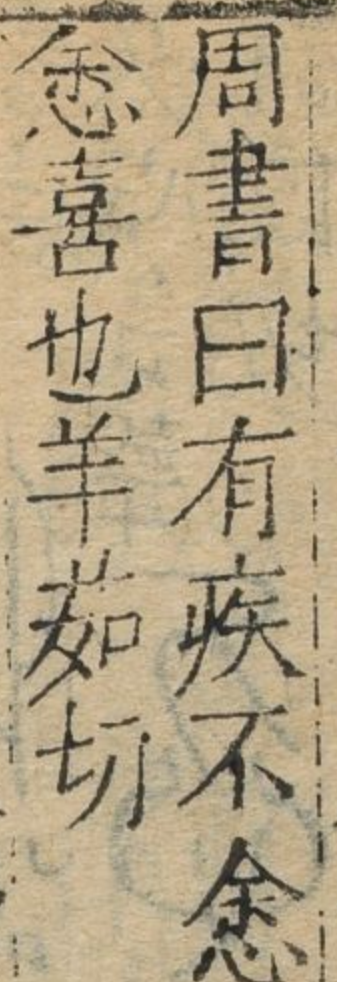 周書曰有疾不悆
悆喜也羊茹切